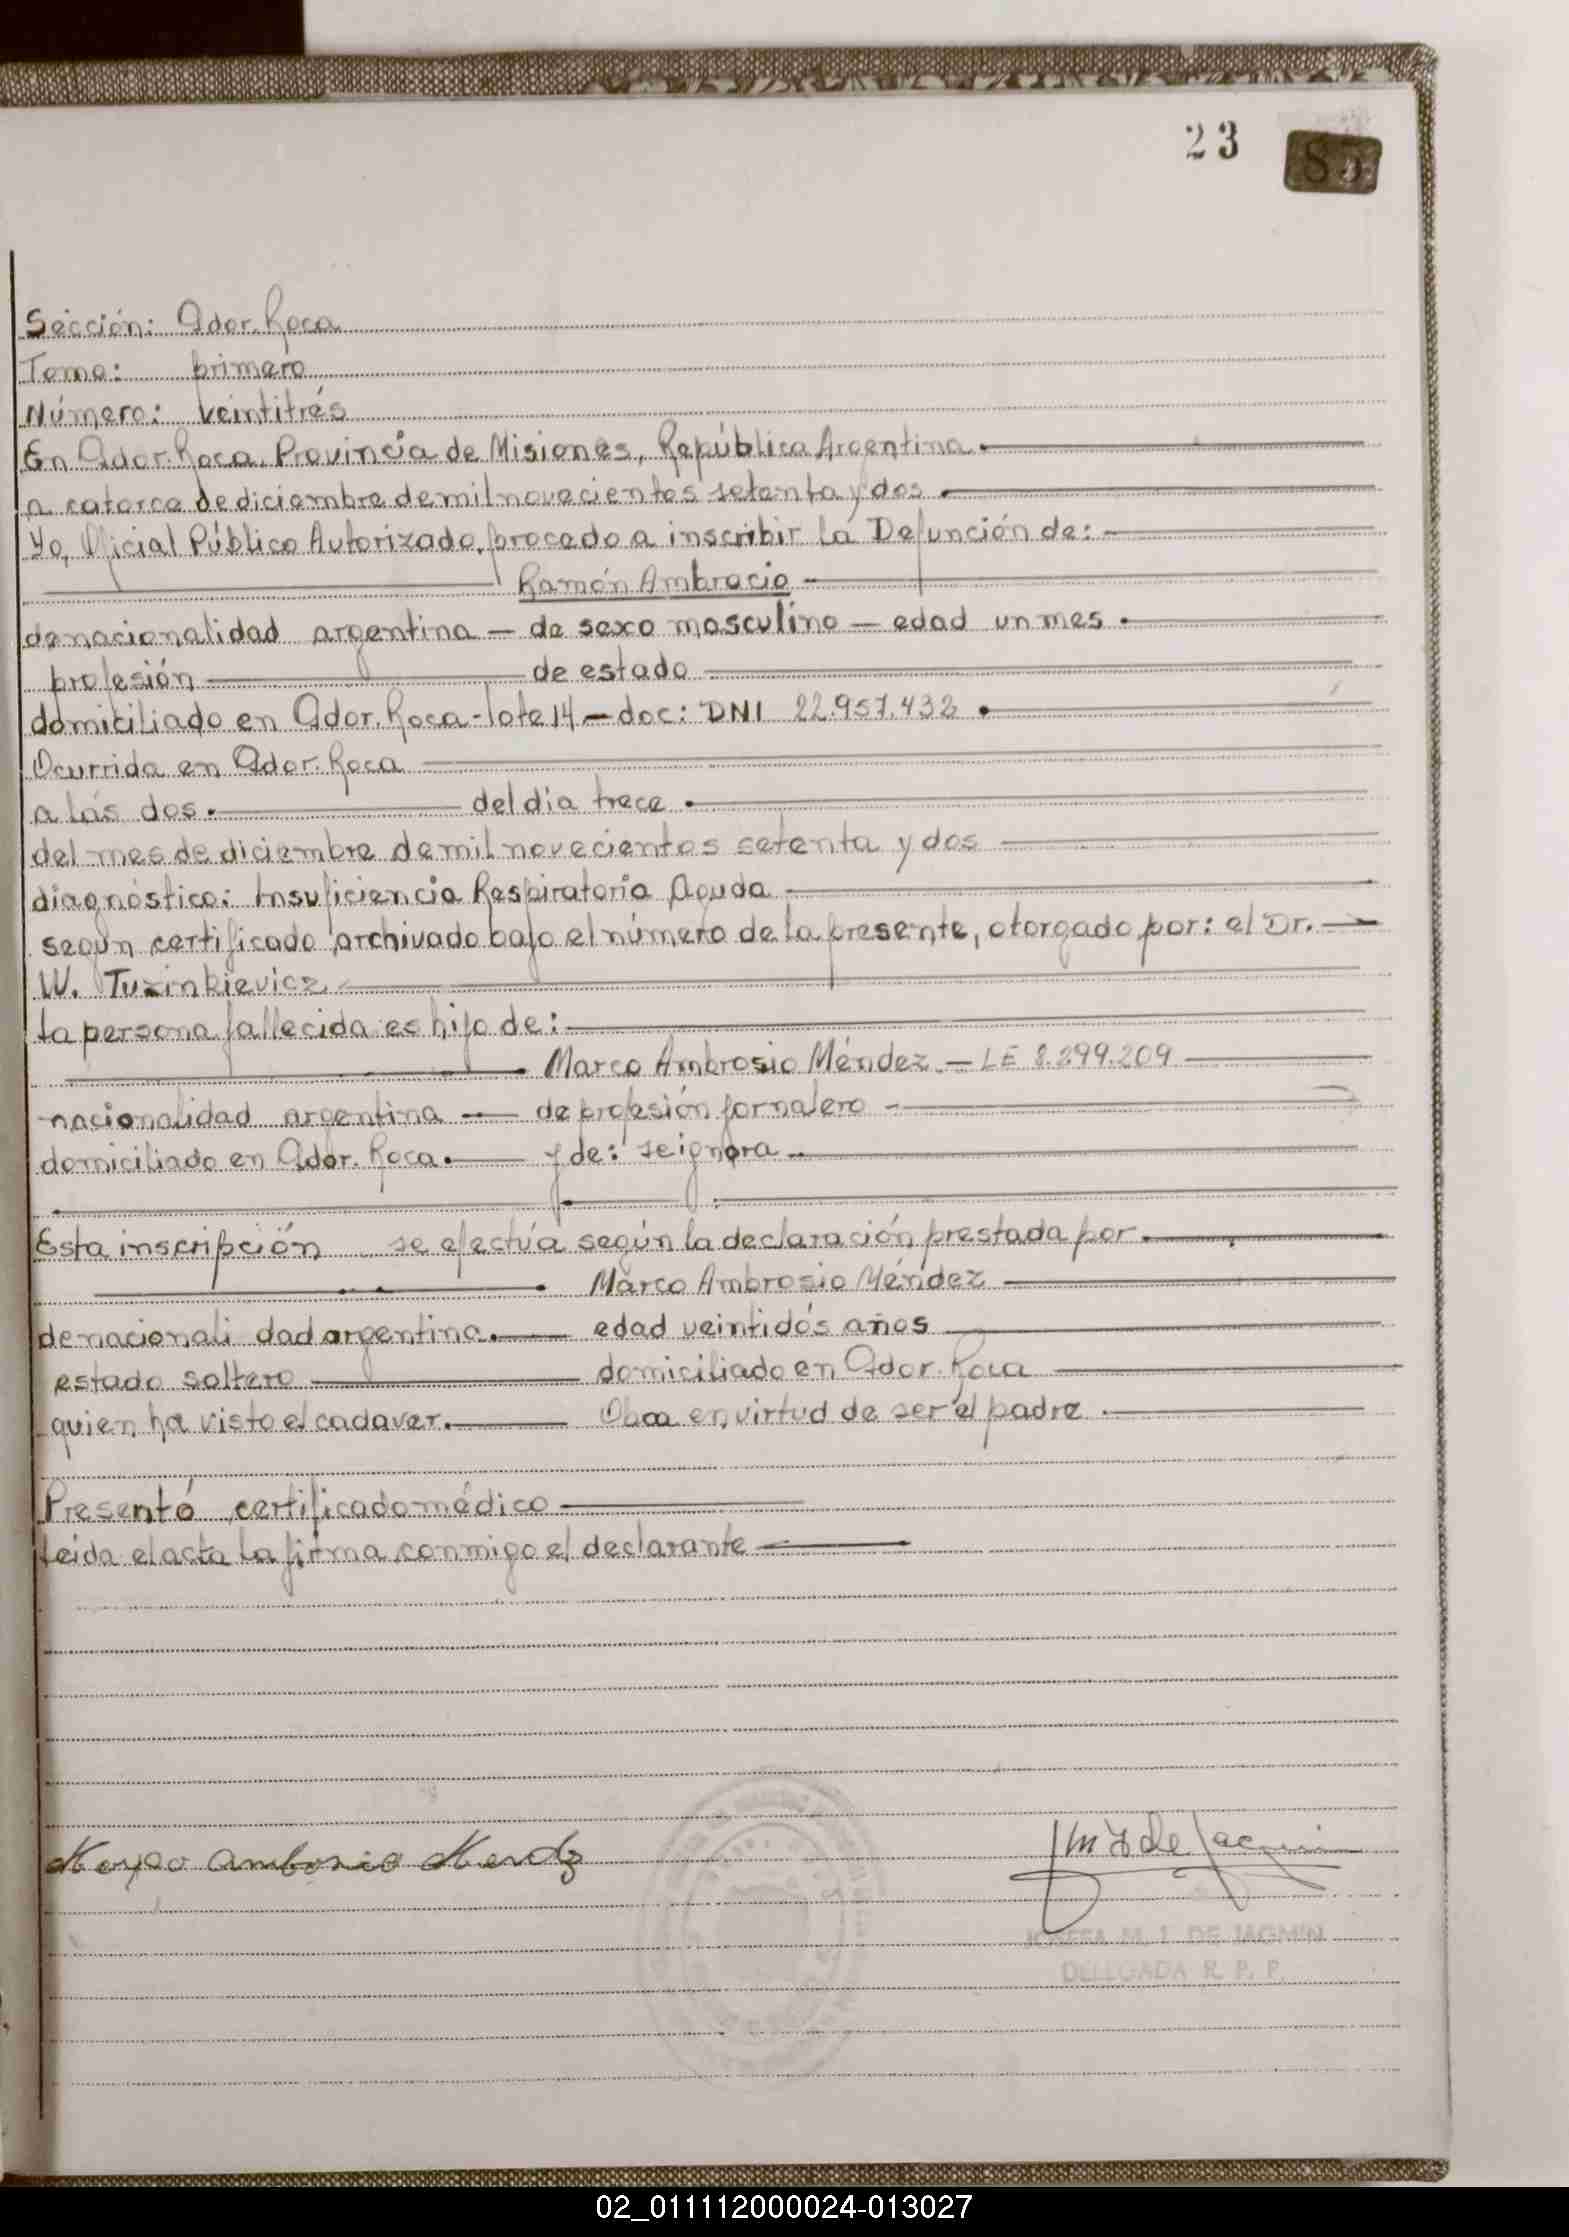 23
85
Sección: Gdor. Roca
Tomo: primero
Número: veintitrés
En Gdor. Roca, Provincia de Misiones, República Argentina.
a catorce de diciembre de mil novecientos setenta y dos
Yo, Oficial Público Autorizado, procedo a inscribir la Defunción de:
Ramón Ambrocio
de nacionalidad argentina — de sexo masculino — edad un mes
profesión — de estado
domiciliado en Gdor. Roca - lote 14 — doc: DNI 22.957.432
Ocurrida en Gdor. Roca
a las dos. — del dia trece
del mes de diciembre de mil novecientos setenta y dos
diagnóstico: Insuficiencia Respiratoria Aguda
según certificado archivado bajo el número de la presente, otorgado por: el Dr. —
W. Tuzinkievicz
la persona fallecida es hijo de:
Marco Ambrosio Méndez. — LE 8.299.209
nacionalidad argentina — de profesión jornalero
domiciliado en Gdor. Roca. — y de: se ignora
Esta inscripción se efectúa según la declaración prestada por
Marco Ambrosio Méndez
de nacionali dad argentina. — edad veintidós años
estado soltero — domiciliado en Gdor. Roca
quien ha visto el cadaver. — Obra en virtud de ser el padre
Presentó certificado médico
leida el acta la firma conmigo el declarante
JOSEFA M. I. DE JAGMIN
DELEGADA R. P. P.
02_011112000024-013027